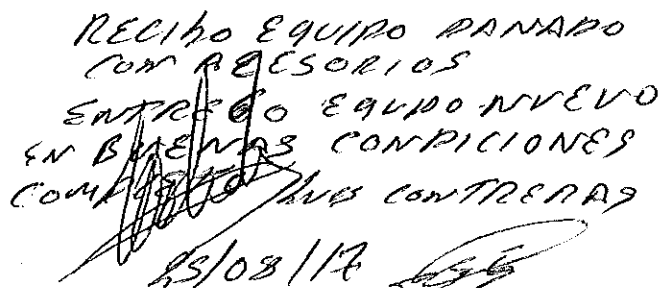 RECIbo EQUIPO DANADO
CON ACESORIOS
ENTREGO EQUIPO NUVEVO
EN BUENAS CONDICIONES
LUIS CONTRERAS
25/08/17